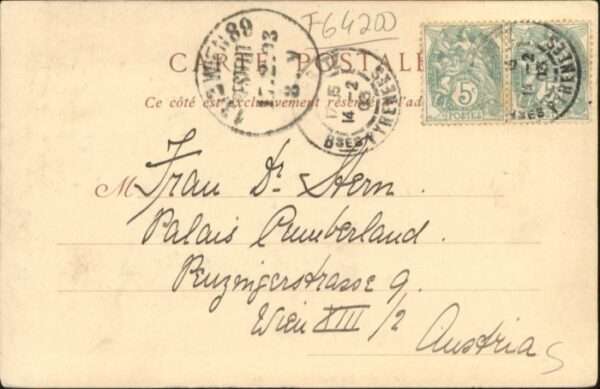 F64200
CARTE POSTALE
Ce côté est exclusivement réservé à l'ad
WIEN 89
17.2.03
8-V
14-2
03
BSES PYRENEES
5c
POSTES
M
Frau Dr. Stern.
Palais Cumberland.
Penzingerstrasse 9.
Wien XIII/2
Austria